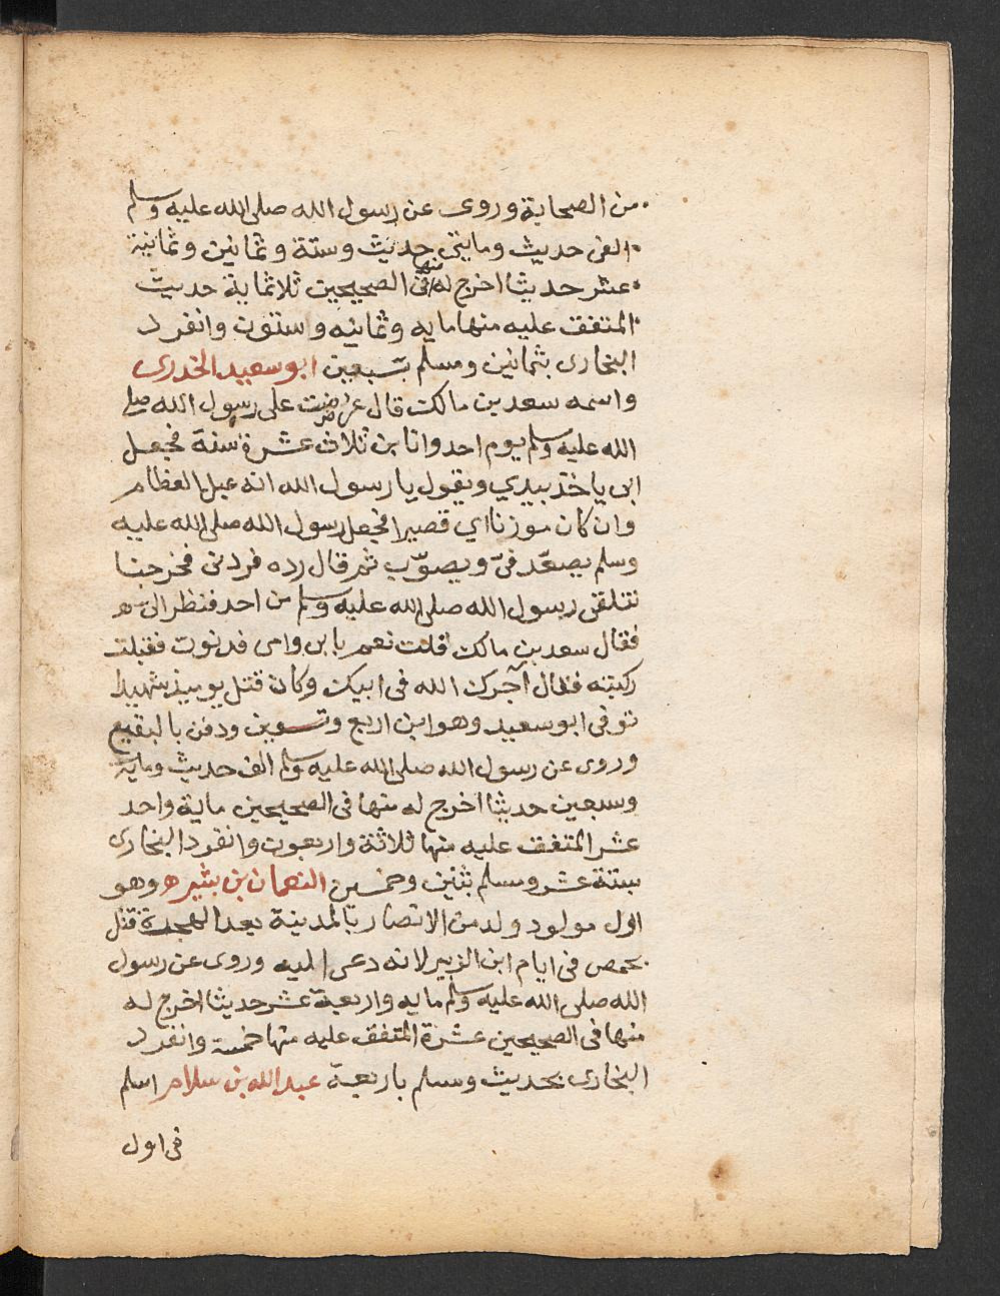 من الصحابة وروى عن رسول الله صلى الله عليه وسلم
الفى حديث ومايتى حديث وستة وثمانين وثمانية
عشر حديثا اخرج له منها فى الصحيحين ثلاثماية حديث
المتفق عليه منها مايه وثمانيه وستون وانفرد
البخارى بثمانين ومسلم بسبعين ابو سعيد الخدرى
واسمه سعد بن مالك قال عرضت على رسول الله صلى
الله عليه وسلم يوم احد وانا بن ثلاث عشرة سنة فجعل
ابى ياخذ بيدي ويقول يا رسول الله انه عبل العظام
وان كان موزنا اي قصيرا فجعل رسول الله صلى الله عليه
وسلم يصعّد فىّ ويصوّب ثم قال رده فردنى فخرجنا
نتلقى رسول الله صلى الله عليه وسلم من احد فنظر الى
فقال سعد بن مالك قلت نعم بابى وامى فدنوت فقبلت
ركبته فقال آجرك الله فى ابيك وكان قتل يوميذ شهيدا
توفى ابو سعيد وهو ابن اربع وتسعين ودفن بالبقيع
وروى عن رسول الله صلى الله عليه وسلم الف حديث وماية
وسبعين حديثا اخرج له منها فى الصحيحين ماية واحد
عشر المتفق عليه منها ثلاثة واربعون وانفرد البخارى
بستة عشر ومسلم بثنين وخمسين النعمان بن بشير وهو
اول مولود ولد من الانصار بالمدينة بعد الهجرة قتل
بحمص فى ايام ابن الزبير لانه دعى اليه وروى عن رسول
الله صلى الله عليه وسلم مايه واربعة عشر حديثا اخرج له
منها فى الصحيحين عشرة المتفق عليه منها خمسة وانفرد
البخارى بحديث ومسلم باربعة عبد الله بن سلام اسلم
فى اول